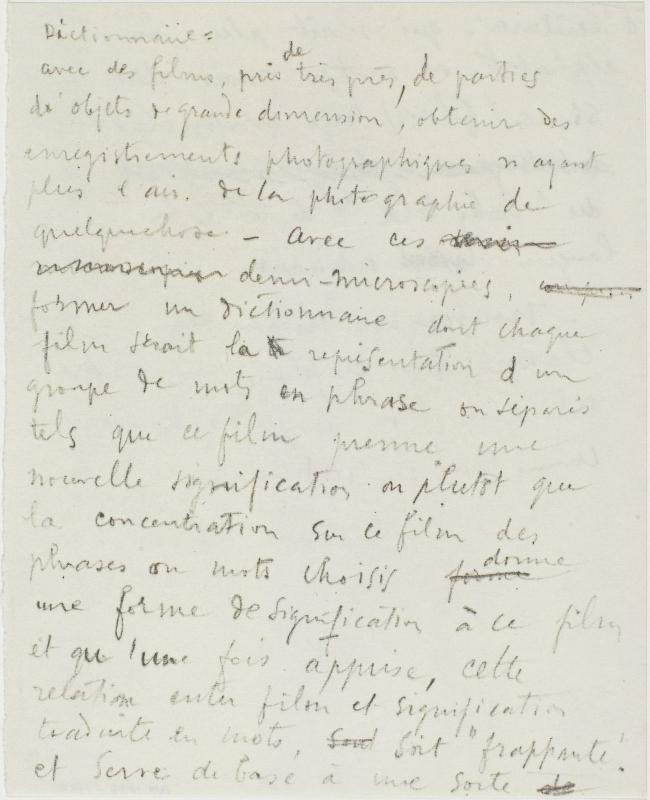 Dictionnaire =
avec des films, pris de très près, de parties
d'objets de grande dimension, obtenir des
enregistrements photographiques n'ayant
plus l'air de la photographie de
quelquechose. – Avec ces
demi-microscopies,
former un dictionnaire dont chaque
film serait la représentation d'un
groupe de mots en phrase ou séparés
tels que ce film prenne une
nouvelle signification ou plutôt que
la concentration sur ce film des
phrases ou mots choisis forme donne
une forme de signification à ce film
et qu'une fois apprise, cette
relation entre film et signification
traduite en mots, soit "frappante"
et serve de base à une sorte de